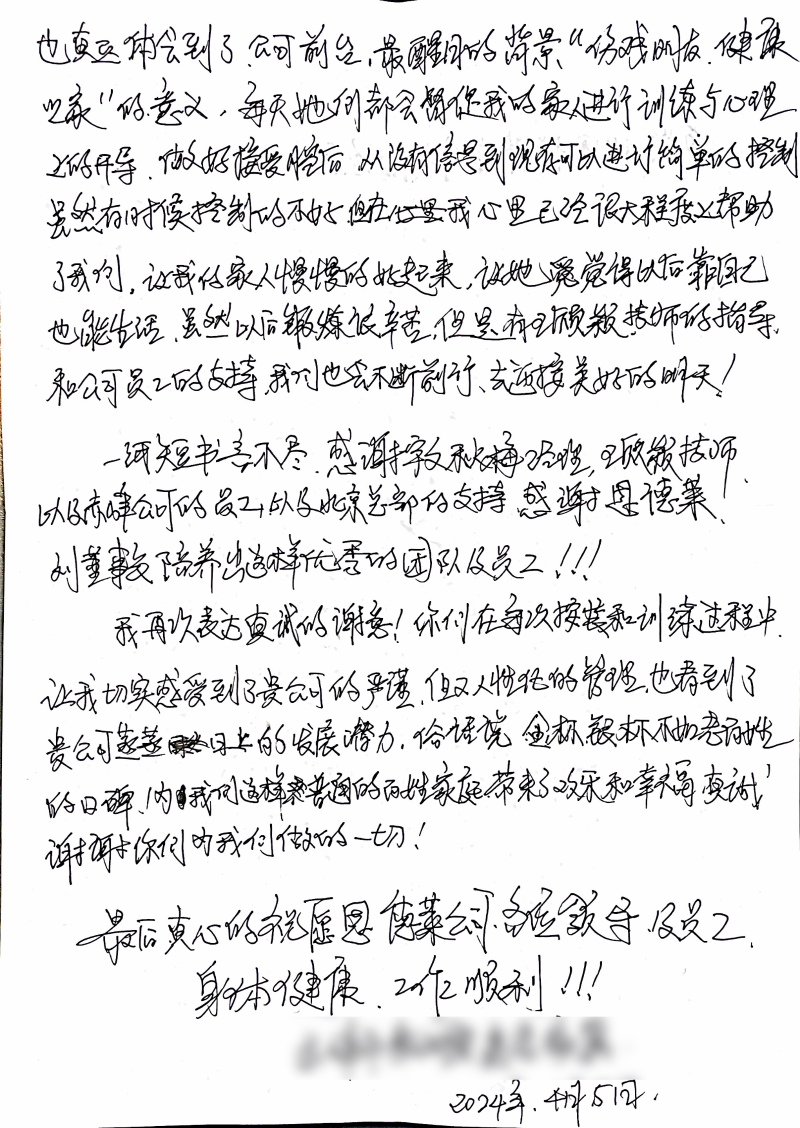 也真正体会到了公司前台,最醒目的背景"伤残朋友.健康
之家"的意义,每天她们都会督促我的家人进行训练与心理
上的开导.做好接受腔后 从没有信息到现在可以进行简单的控制
虽然有时候控制的不好 但在心里我心里已经很大程度上帮助
了我们,让我的家人慢慢的好起来,让她觉得以后靠自己
也能生活.虽然以后锻炼很辛苦,但是有王颀颖技师的指导,
和公司员工的支持,我们也会不断前行、去迎接美好的明天!
一纸短书言不尽.感谢宇文秋梅经理,王颀颖技师
以及赤峰公司的员工,以及北京总部的支持 感谢恩德莱!
刘董事长培养出这样优秀的团队及员工!!!
我再次表达真诚的谢意!你们在每次按装和训练过程中
让我切实感受到了贵公司的严谨,但又人性化的管理,也看到了
贵公司蒸蒸日上的发展潜力.俗话说 金杯银杯不如老百姓
的口碑!为我们这样普通的百姓家庭带来了欢乐和幸福 真诚
谢谢你们为我们做的一切!
最后真心的祝愿恩德莱公司.各位领导.及员工.
身体健康.工作顺利!!!
2024年.4月51日.